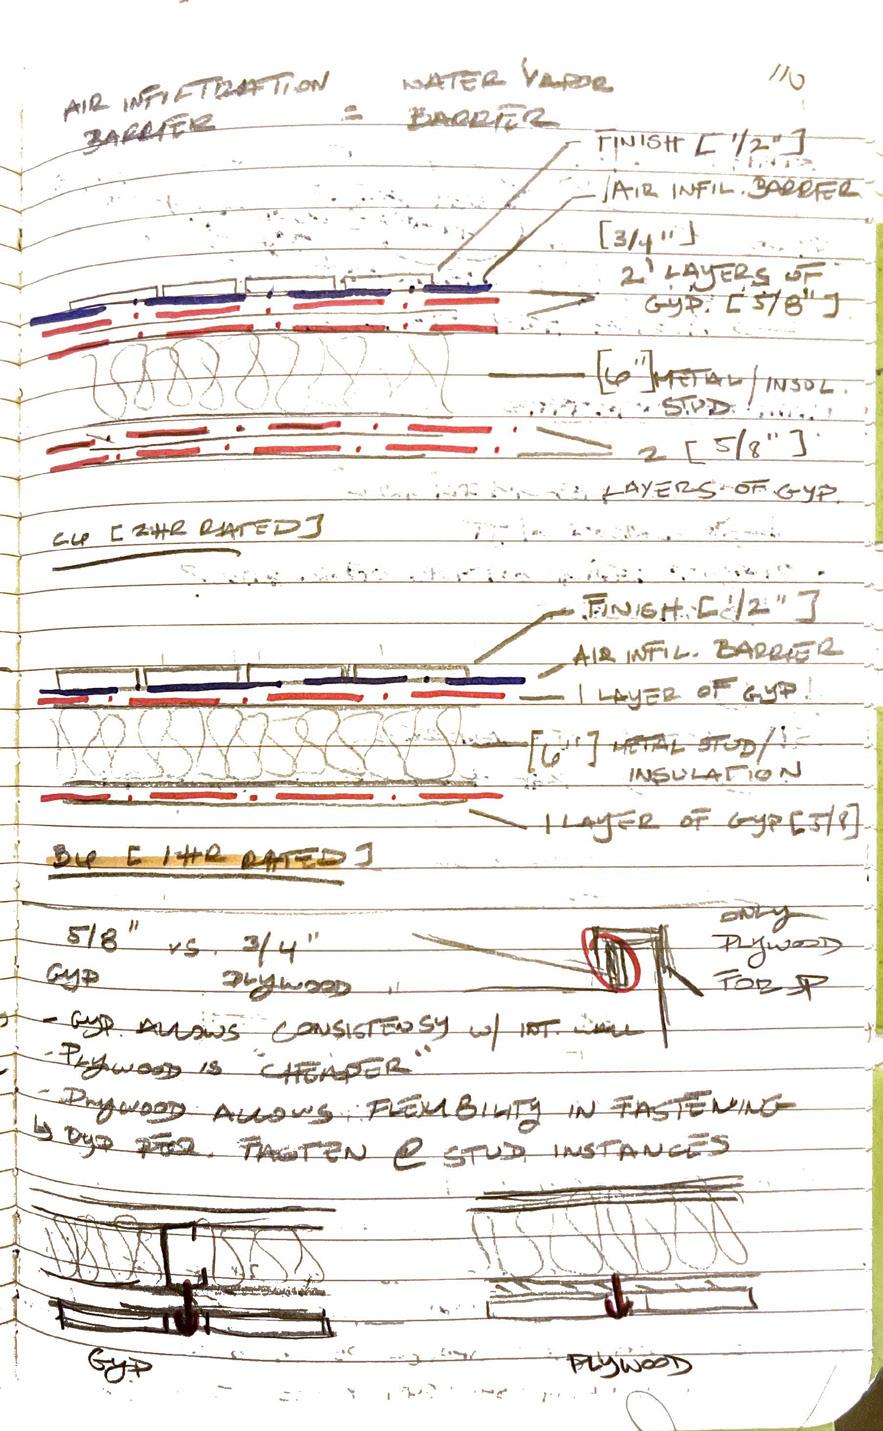 110
AIR INFILTRATION = WATER VAPOR
BARRIER BARRIER
FINISH [1/2"]
AIR INFIL. BARRIER
[3/4"]
2 LAYERS OF
GYP. [5/8"]
[6"] METAL / INSUL.
STUD
2 [5/8"]
LAYERS OF GYP.
[2HR RATED]
FINISH [1/2"]
AIR INFIL. BARRIER
1 LAYER OF GYP
[6"] METAL STUD/
INSULATION
1 LAYER OF GYP [5/8]
[1HR RATED]
5/8" vs. 3/4"
GYP PLYWOOD
ONLY
PLYWOOD
FOR
- GYP. ALLOWS CONSISTENSY W/ INT. WALL
- PLYWOOD IS "CHEAPER"
- PLYWOOD ALLOWS FLEXIBILITY IN FASTENING
↳ GYP FASTEN @ STUD INSTANCES
GYP
PLYWOOD